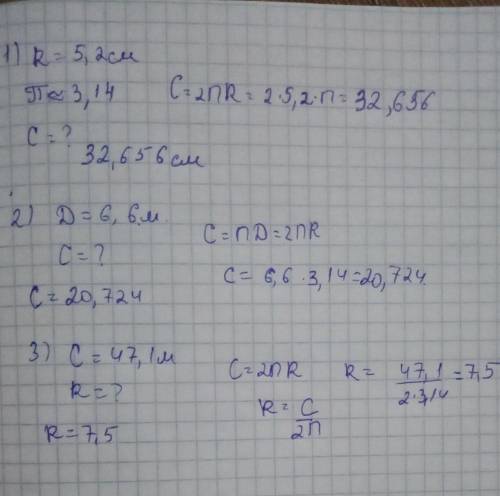 1) R = 5,2 см
П ≈ 3,14
C = 2ПR = 2·5,2·П = 32,656
C = ?
32,656 см
2) D = 6,6 м
C = ПD = 2ПR
C = ?
C = 6,6 · 3,14 = 20,724
C = 20,724
3) C = 47,1 м
C = 2ПR R = 47,1 / 2·3,14 = 7,5
R = ?
R = C / 2П
R = 7,5